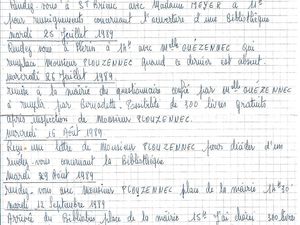 Rendez-vous à St Brieuc avec Madame MEYER à 11h
pour renseignements concernant l'ouverture d'une Bibliothèque
mardi 25 Juillet 1989.
Rendez-vous à Plérin à 14h avec Mlle GUÉZENNEC qui
remplace Monsieur PLOUZENNEC quand ce dernier est absent.
mercredi 26 Juillet 1989.
remise à la mairie du questionnaire confié par Mlle GUÉZENNEC
à remplir par Bernadette. Possibilité de 300 livres gratuits
après inspection de Monsieur PLOUZENNEC.
mercredi 16 Août 1989
Reçu une lettre de Monsieur PLOUZENNEC pour décider d'un
rendez-vous concernant la Bibliothèque
mardi 29 Août 1989
rendez-vous avec Monsieur PLOUZENNEC place de la mairie 14h30
mardi 12 Septembre 1989
Arrivée du Bibliobus place de la mairie 15h J'ai choisi 300 livres